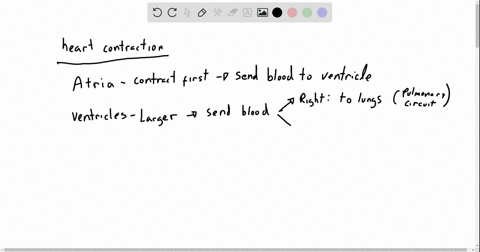 heart contraction
Atria - contract first → send blood to ventricle
Ventricles - Larger → send blood
Right: to lungs (Pulmonary circuit)